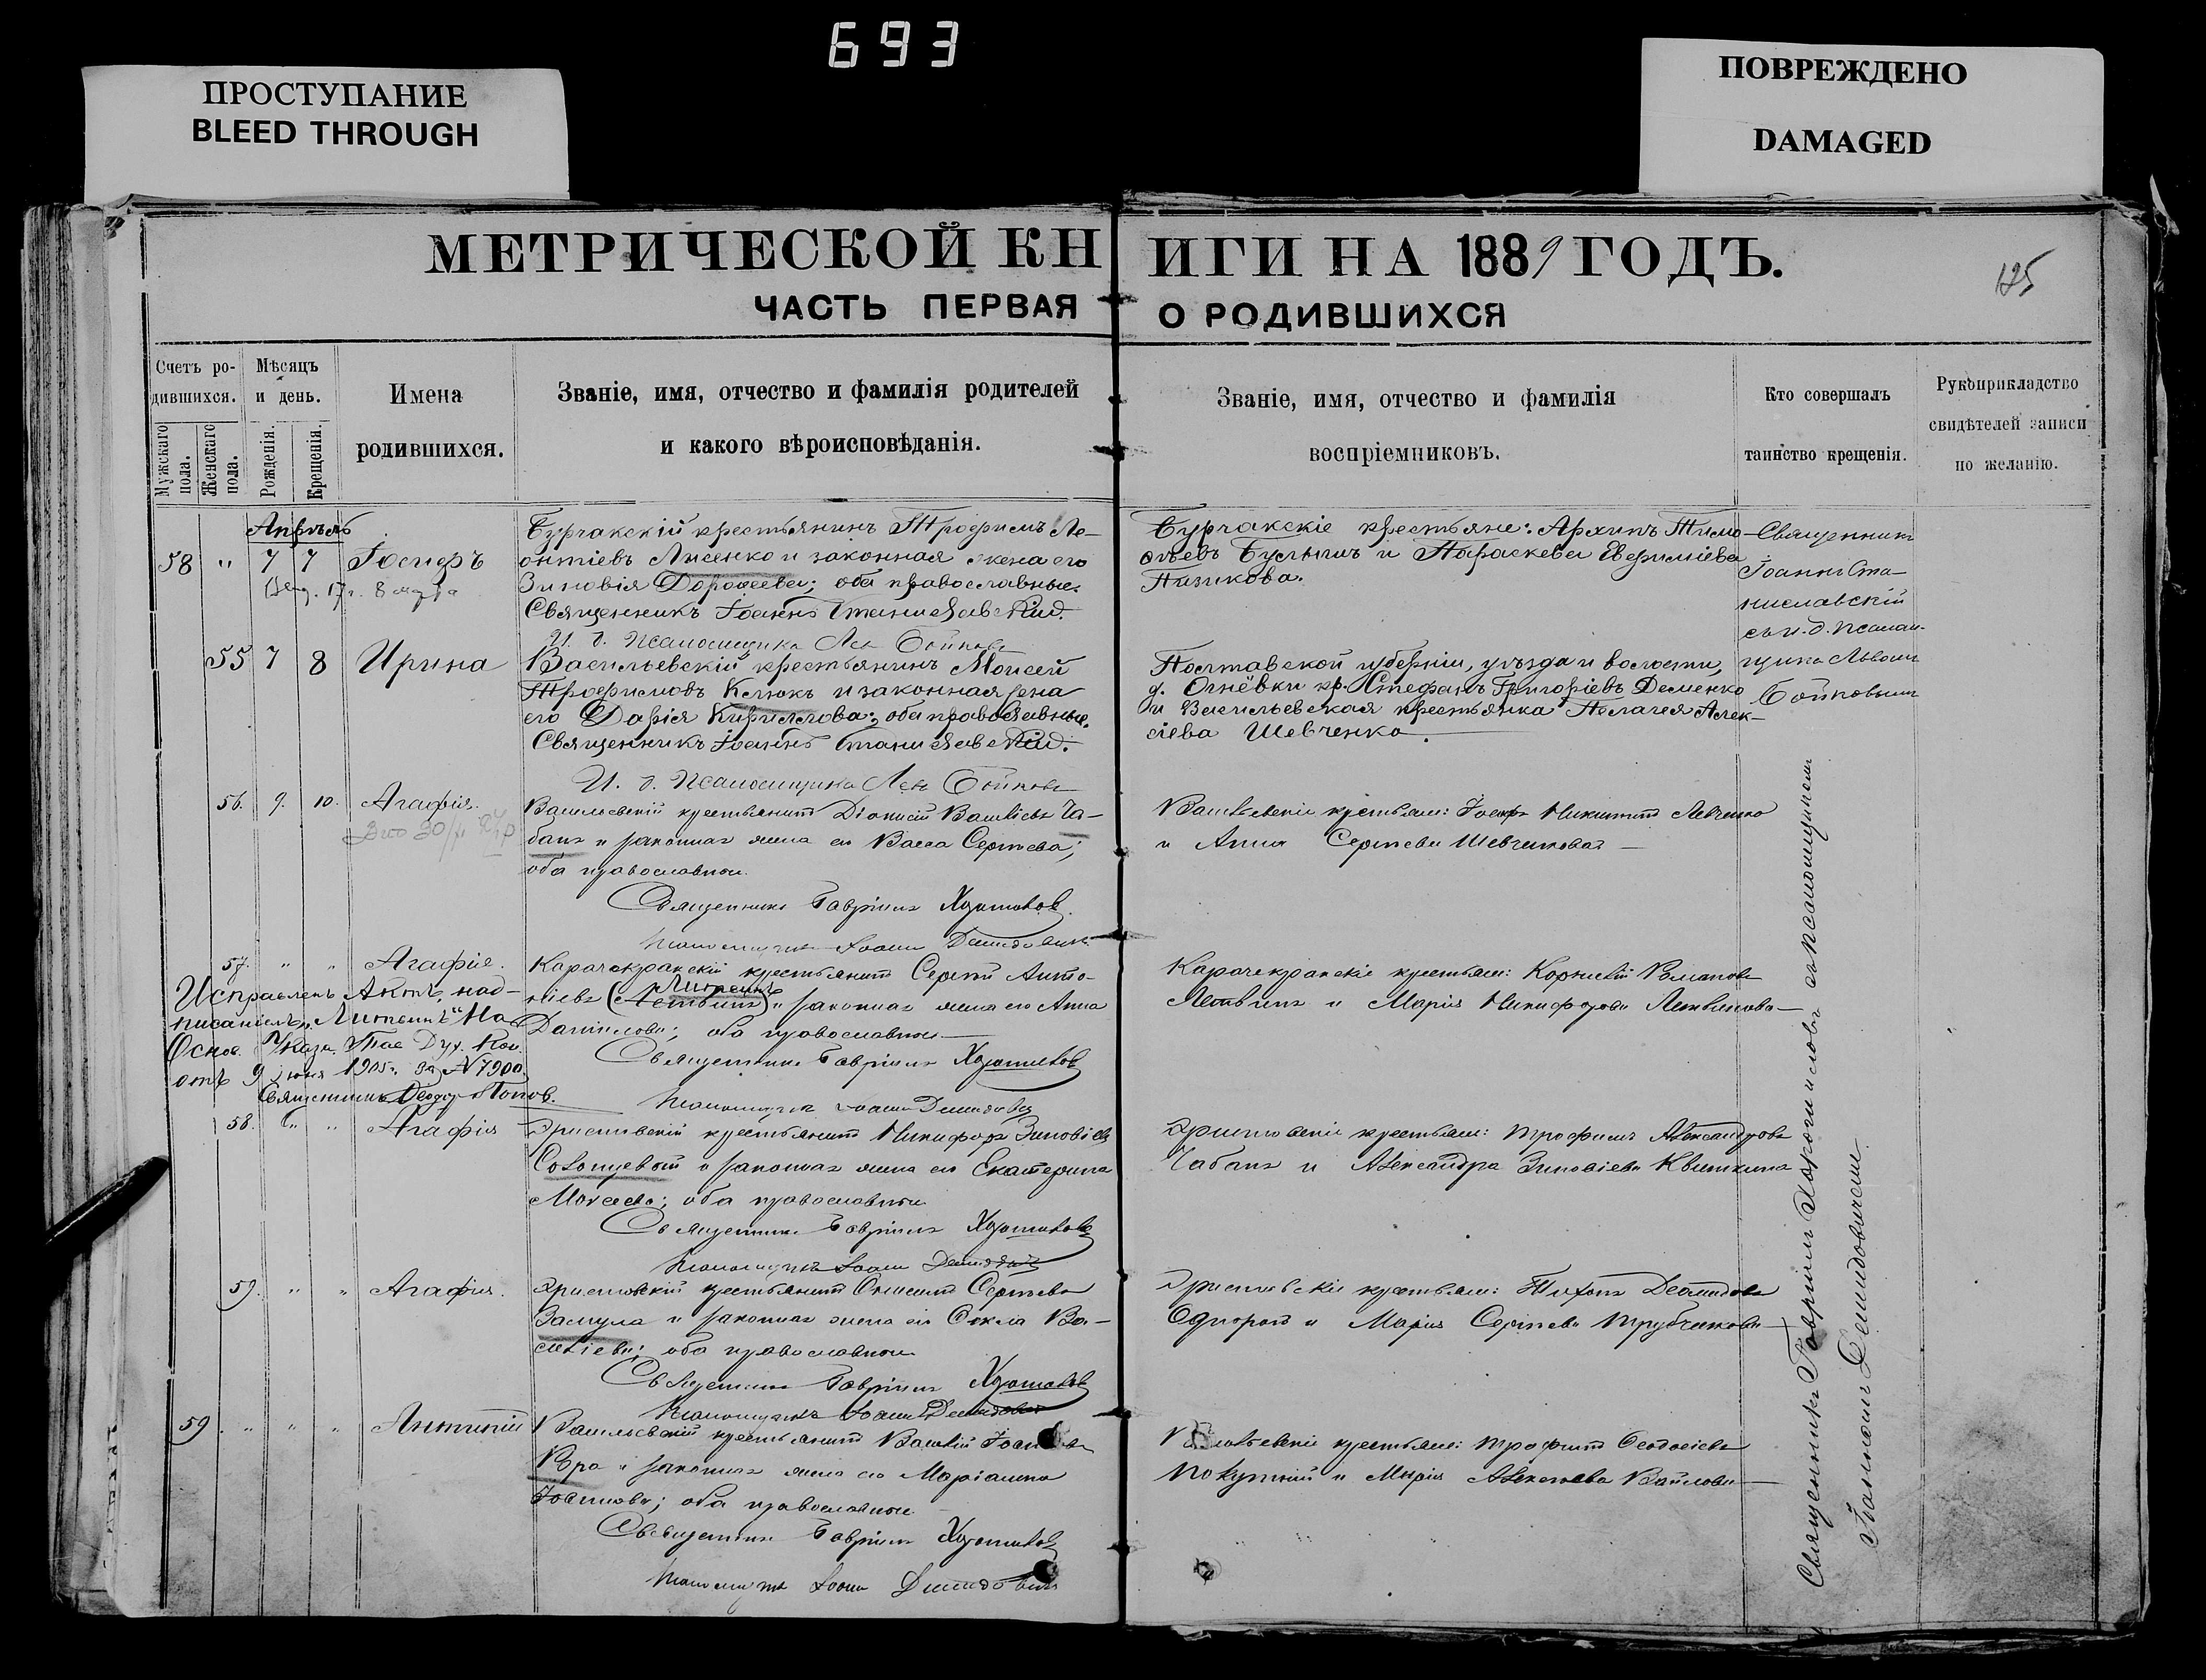 693
ПРОСТУПАНИЕ
BLEED THROUGH
ПОВРЕЖДЕНО
DAMAGED
МЕТРИЧЕСКОЙ КН ИГИ НА 1889 ГОДЪ.
125
ЧАСТЬ ПЕРВАЯ О РОДИВШИХСЯ
Счетъ ро-
дившихся.
Мужскаго пола.
Женскаго пола.
Мѣсяцъ
и день.
Рожденія.
Крещенія.
Имена
родившихся.
Званіе, имя, отчество и фамилія родителей
и какого вѣроисповѣданія.
Званіе, имя, отчество и фамилія
воспріемниковъ.
Кто совершалъ
таинство крещенія.
Рукоприкладство
свидѣтелей записи
по желанію.
Апрѣль
58 " 7 7 Іосифъ
Бурчакскій крестьянинъ Трофимъ Ле-
онтіевъ Лисенко и законная жена его
Зиновія Дороѳеева; оба православные.
Священникъ Іоаннъ Станиславскій.
И. д. псаломщика Левъ Бойковъ
Бурчакскіе крестьяне: Архипъ Тимо-
ѳѣевъ Буслышъ и Параскева Евфиміева
Священникъ
Іоаннъ Ста-
ниславскій
съ и. д. псалом-
щика Львомъ
Бойковымъ
55 7 8 Ирина
Васильевскій крестьянинъ Моисей
Трофимовъ Клюкъ и законная жена
его Дарія Кириллова; оба православные.
Священникъ Іоаннъ Станиславскій.
И. д. псаломщика Левъ Бойковъ
Полтавской губерніи, уѣзда и волости,
д. Огнёвки кр. Стефанъ Григоріевъ Деменко
и Васильевская крестьянка Пелагея Алек-
сіева Шевченко.
56. 9. 10. Агафія.
Васильевскій крестьянинъ Діонисій Васильевъ Ча-
банъ и законная жена его Васса Сергѣева;
оба православные.
Священникъ Гавріилъ
Псаломщикъ Іоаннъ Демидовичъ
Васильевскіе крестьяне: Іосифъ Никитинъ Левченко
и Анна Сергѣева Шевченкова
57. " " Агафія.
Карачекракскій крестьянинъ Сергѣй Анто-
Литвинъ
ніевъ (Летвинъ) и законная жена его Анна
Даніилова; оба православные
Священникъ Гавріилъ
Псаломщикъ Іоаннъ Демидовичъ
Карачекракскіе крестьяне: Корнилій Романовъ
Летвинъ и Марія Никифорова Литвинова
Исправленъ Актъ, над-
писаніемъ „Литвинъ" На
Основ. Указа Тав. Дух. Кон.
отъ 9 іюня 1905 г. за № 7900.
Священникъ Ѳеодоръ Поповъ.
58. " " Агафія
крестьянинъ Никифоръ Зиновіевъ
и законная жена его Екатерина
Моисеева; оба православные
Священникъ Гавріилъ
Псаломщикъ Іоаннъ Демидовичъ
крестьяне: Трофимъ Александровъ
Чабанъ и Александра Зиновіева Квиткина
59. " " Агафія.
крестьянинъ Онисимъ Сергѣевъ
Замула и законная жена его Ѳекла Ва-
силіева; оба православные
Священникъ Гавріилъ
Псаломщикъ Іоаннъ Демидовичъ
крестьяне: Тихонъ Демидовъ
и Марія Сергѣева Трубчикова
59 " " " Антипій
Васильевскій крестьянинъ Василій
и законная жена его Маріанна
оба православные
Священникъ Гавріилъ
Псаломщикъ Іоаннъ Демидовичъ
Васильевскіе крестьяне: Трофимъ Ѳеодосіевъ
и Марія Алексѣева
Священникъ Гавріилъ съ псаломщикомъ
Іоанномъ Демидовичемъ.